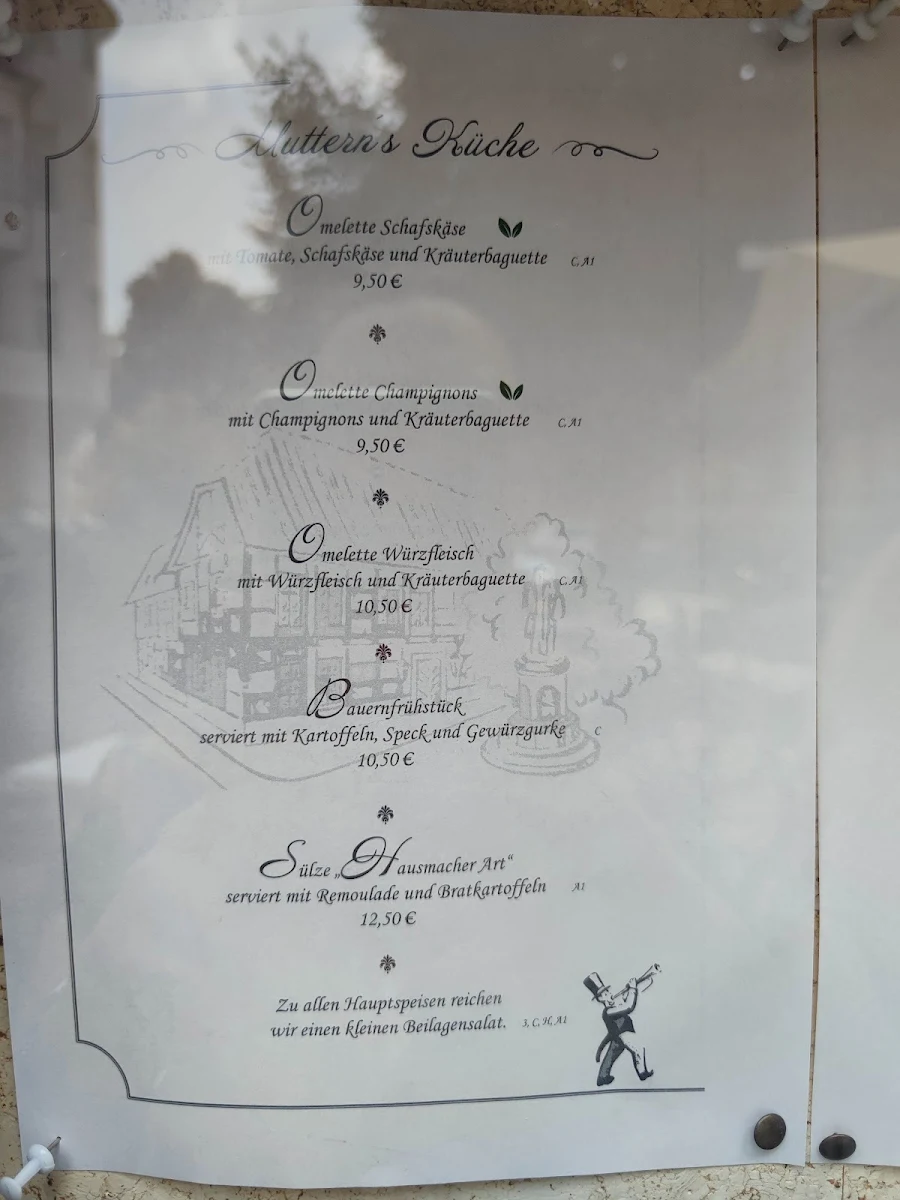 Muttern's Küche
Omelette Schafskäse
mit Tomate, Schafskäse und Kräuterbaguette C, A1
9,50 €
Omelette Champignons
mit Champignons und Kräuterbaguette C, A1
9,50 €
Omelette Würzfleisch
mit Würzfleisch und Kräuterbaguette C, A1
10,50 €
Bauernfrühstück
serviert mit Kartoffeln, Speck und Gewürzgurke C
10,50 €
Sülze „Hausmacher Art“
serviert mit Remoulade und Bratkartoffeln A1
12,50 €
Zu allen Hauptspeisen reichen
wir einen kleinen Beilagensalat. 3, C, H, A1